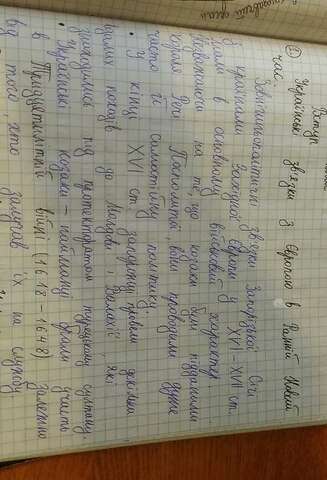 Вступ
① Українські зв'язки з Європою в Ранній Новий
час
Зовнішньополітичні зв'язки Запорізької Січі
з країнами Західної Європи у XVI-XVII ст.
мали в основному військовий характер.
Незважаючи на те, що козаки були підданими
короля Речі Посполитої, вони проводили дуже
часто й самостійну політику.
• У кінці XVI ст. запорожці провели декілька
вдалих походів до Молдови, Валахії, які
знаходилися під протекторатом турецького султана.
• Українські козаки - найманці брали участь
в Тридцятилітній війні (1618-1648) залежно
від того, хто залучав їх на службу